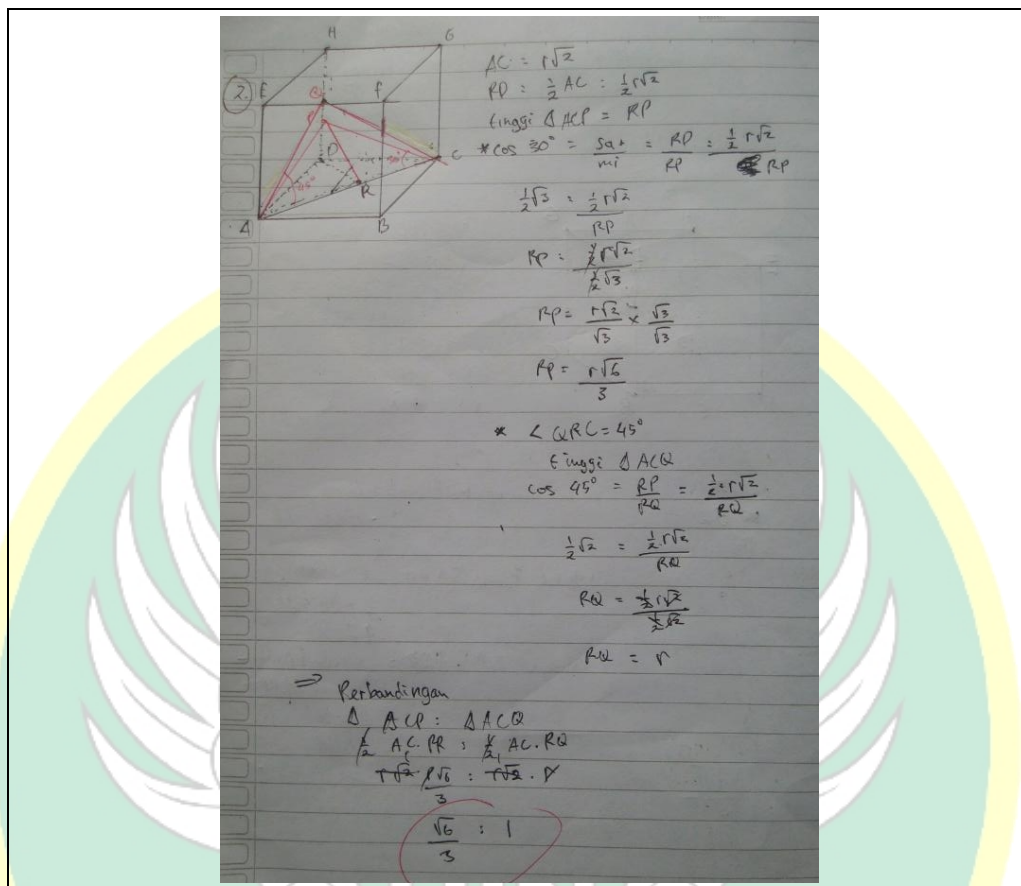 2.
H
G
E
Q
F
P
D
30°
C
45°
R
A
B
AC = r√2
RD = 1/2 AC = 1/2 r√2
tinggi Δ ACP = RP
* cos 30° = sa+/mi = RD/RP = 1/2 r√2 / RP
1/2 √3 = 1/2 r√2 / RP
RP = 1/2 r√2 / 1/2 √3
RP = r√2/√3 × √3/√3
RP = r√6/3
* ∠ QRC = 45°
tinggi Δ ACQ
cos 45° = RP/RQ = 1/2 r√2 / RQ .
1/2 √2 = 1/2 r√2 / RQ
RQ = 1/2 r√2 / 1/2 √2
RQ = r
⇒ Perbandingan
Δ ACP : Δ ACQ
1/2 AC . PR : 1/2 AC . RQ
r√2 r√6/3 : r√2 . r
√6/3 : 1